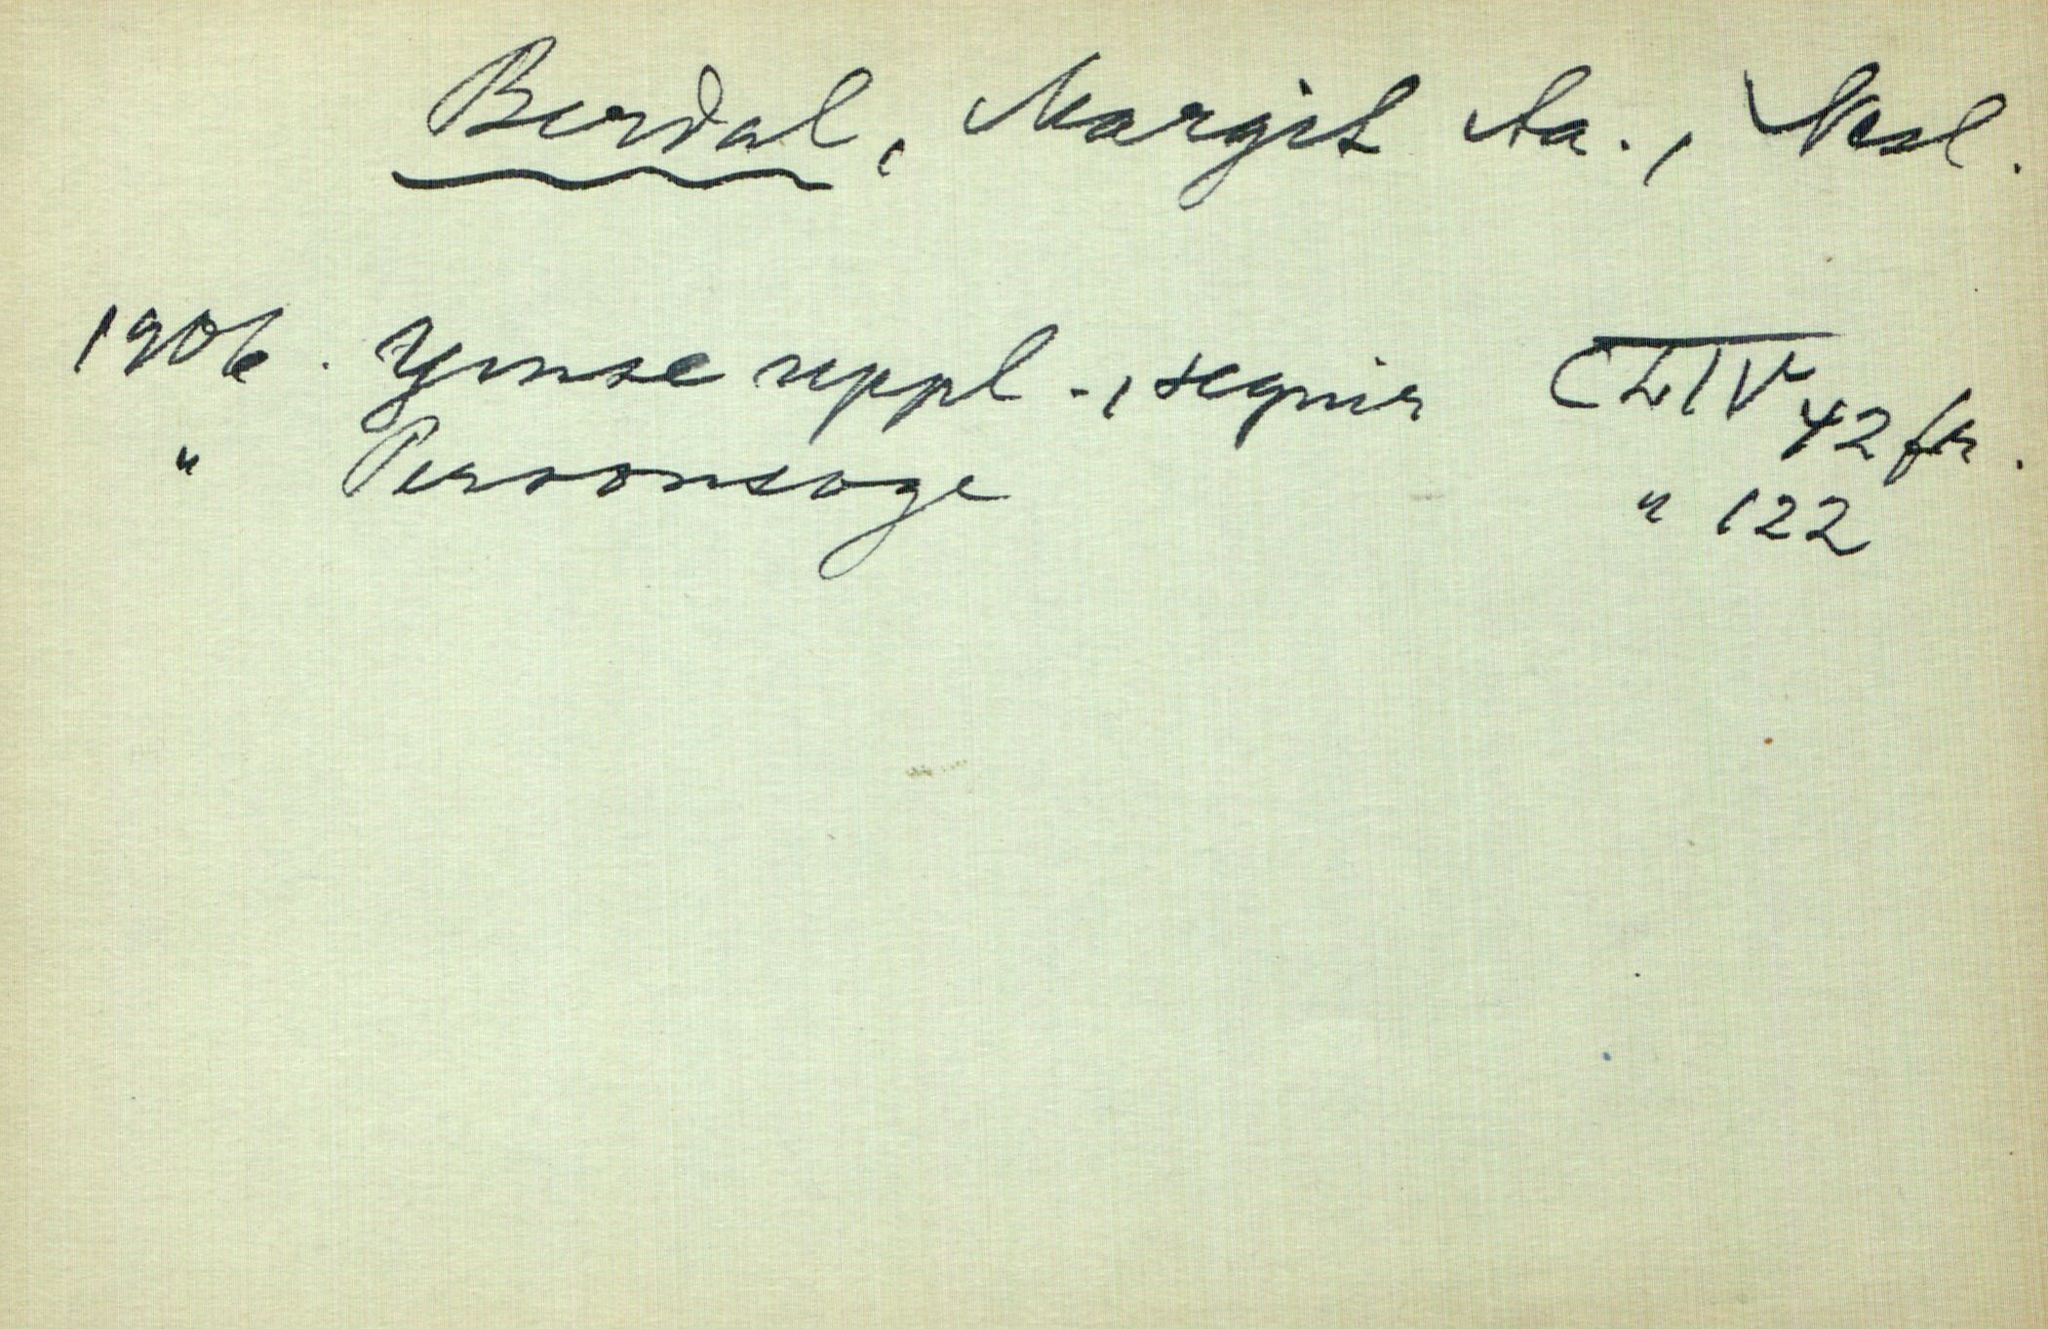 Berdal, Margit Aa., Nesl.
1906. Ymse uppl., segnir CLIV 42 fr.
" Personsoge " 122